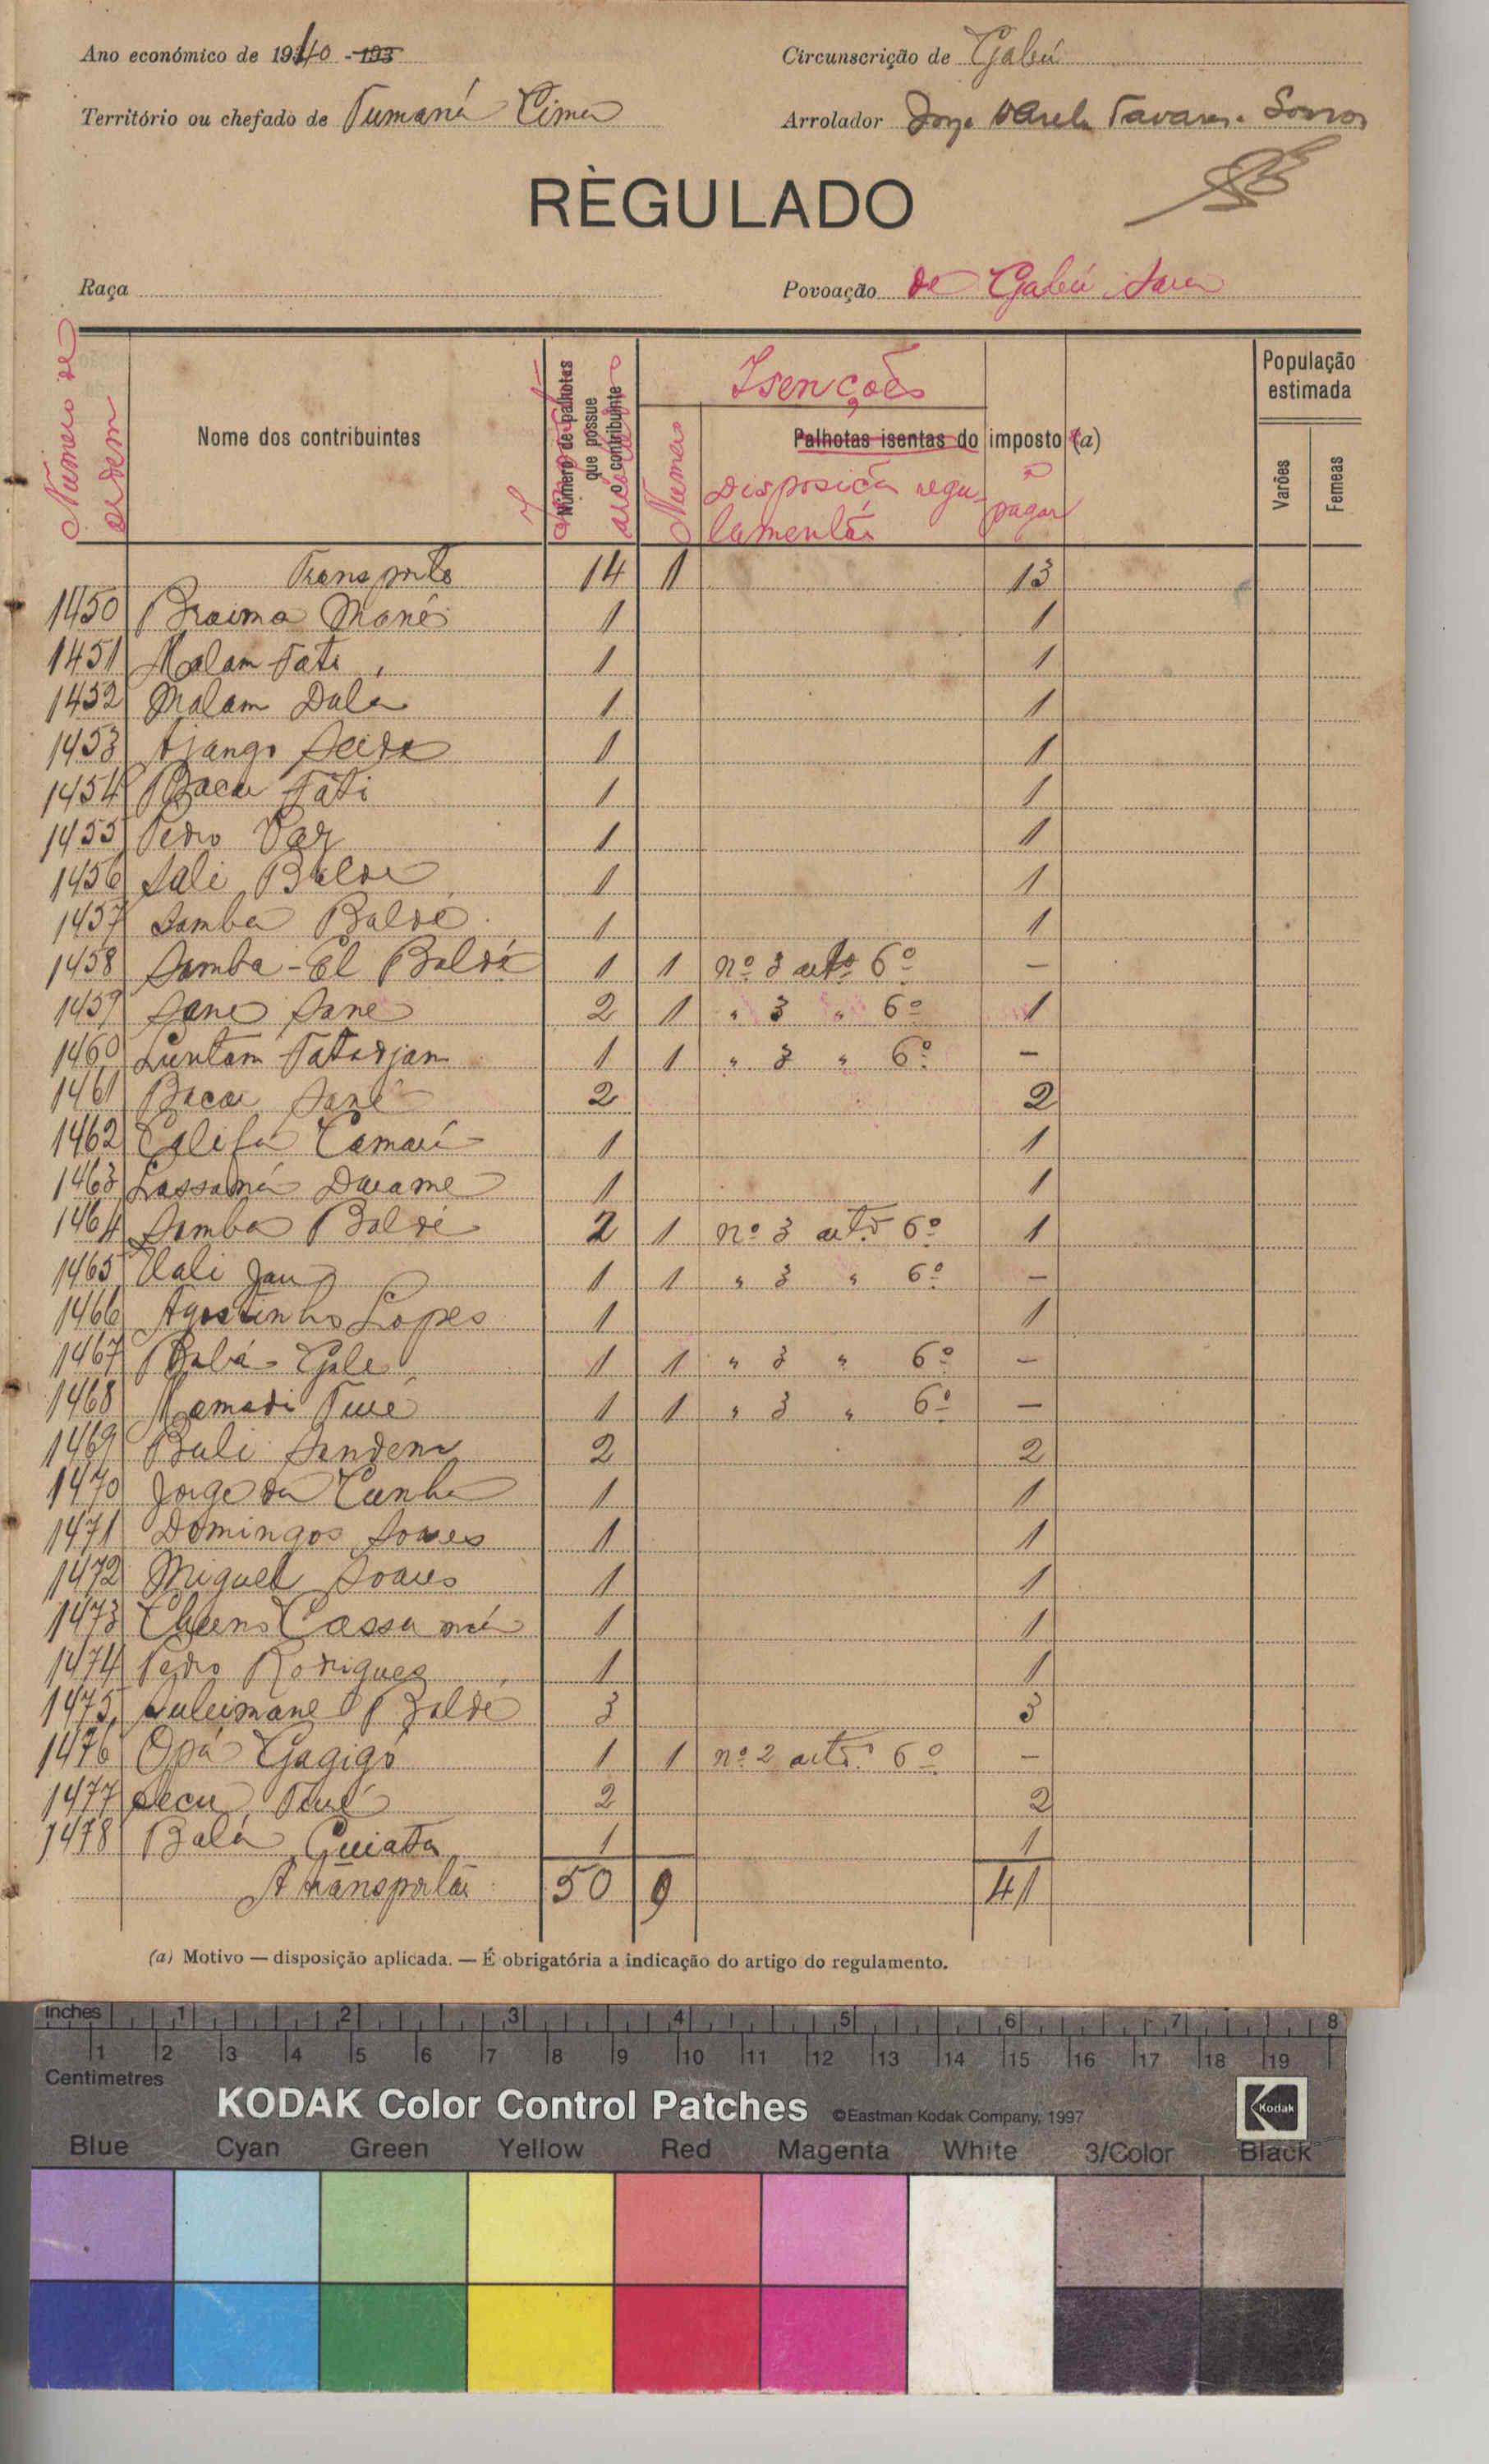 Ano económico de 1940 - 193
Circunscrição de Gabú
Território ou chefado de Tumaná Cima
Arrolador Jorge Varela Tavares
RÈGULADO
Raça
Povoação de Gabú Sara
Número de ordem
Nome dos contribuintes
Número de palhotas que possue o contribuinte
Isenções
Numero
Palhotas isentas do imposto (a)
Disposição regulamentar
a pagar
População estimada
Varões
Femeas
Transporte 14 1 13
1450 Braima Mané 1 1
1451 Malam Fati 1 1
1452 Malam Dabá 1 1
1453 Ajango Seide 1 1
1454 Bacar Fati 1 1
1455 Pedro Vaz 1 1
1456 Sali Balde 1 1
1457 Samba Baldé 1 1
1458 Samba-El Baldé 1 1 nº 3 artº 6º —
1459 Sane Sane 2 1 " 3 " 6º 1
1460 Luntam Tatadjam 1 1 " 3 " 6º —
1461 Bacar Sané 2 2
1462 Califa Camará 1 1
1463 Lassaná Darame 1 1
1464 Samba Baldé 2 1 nº 3 artº 6º 1
1465 Uali Jau 1 1 " 3 " 6º —
1466 Agostinho Lopes 1 1
1467 Babá Gale 1 1 " 3 " 6º —
1468 Mamadi Turé 1 1 " 3 " 6º —
1469 Buli 2 2
1470 Jorge da Cunha 1 1
1471 Domingos Soares 1 1
1472 Miguel Soares 1 1
1473 Cassamá 1 1
1474 Pedro Rodrigues 1 1
1475 Suleimane Baldé 3 3
1476 Opá Gagigó 1 1 nº 2 artº 6º —
1477 Secu Turé 2 2
1478 Balá Cuiata 1 1
A transportar 50 9 41
(a) Motivo — disposição aplicada. — É obrigatória a indicação do artigo do regulamento.
inches 1 2 3 4 5 6 7 8
1 2 3 4 5 6 7 8 9 10 11 12 13 14 15 16 17 18 19
Centimetres
KODAK Color Control Patches ©Eastman Kodak Company, 1997 Kodak
Blue Cyan Green Yellow Red Magenta White 3/Color Black